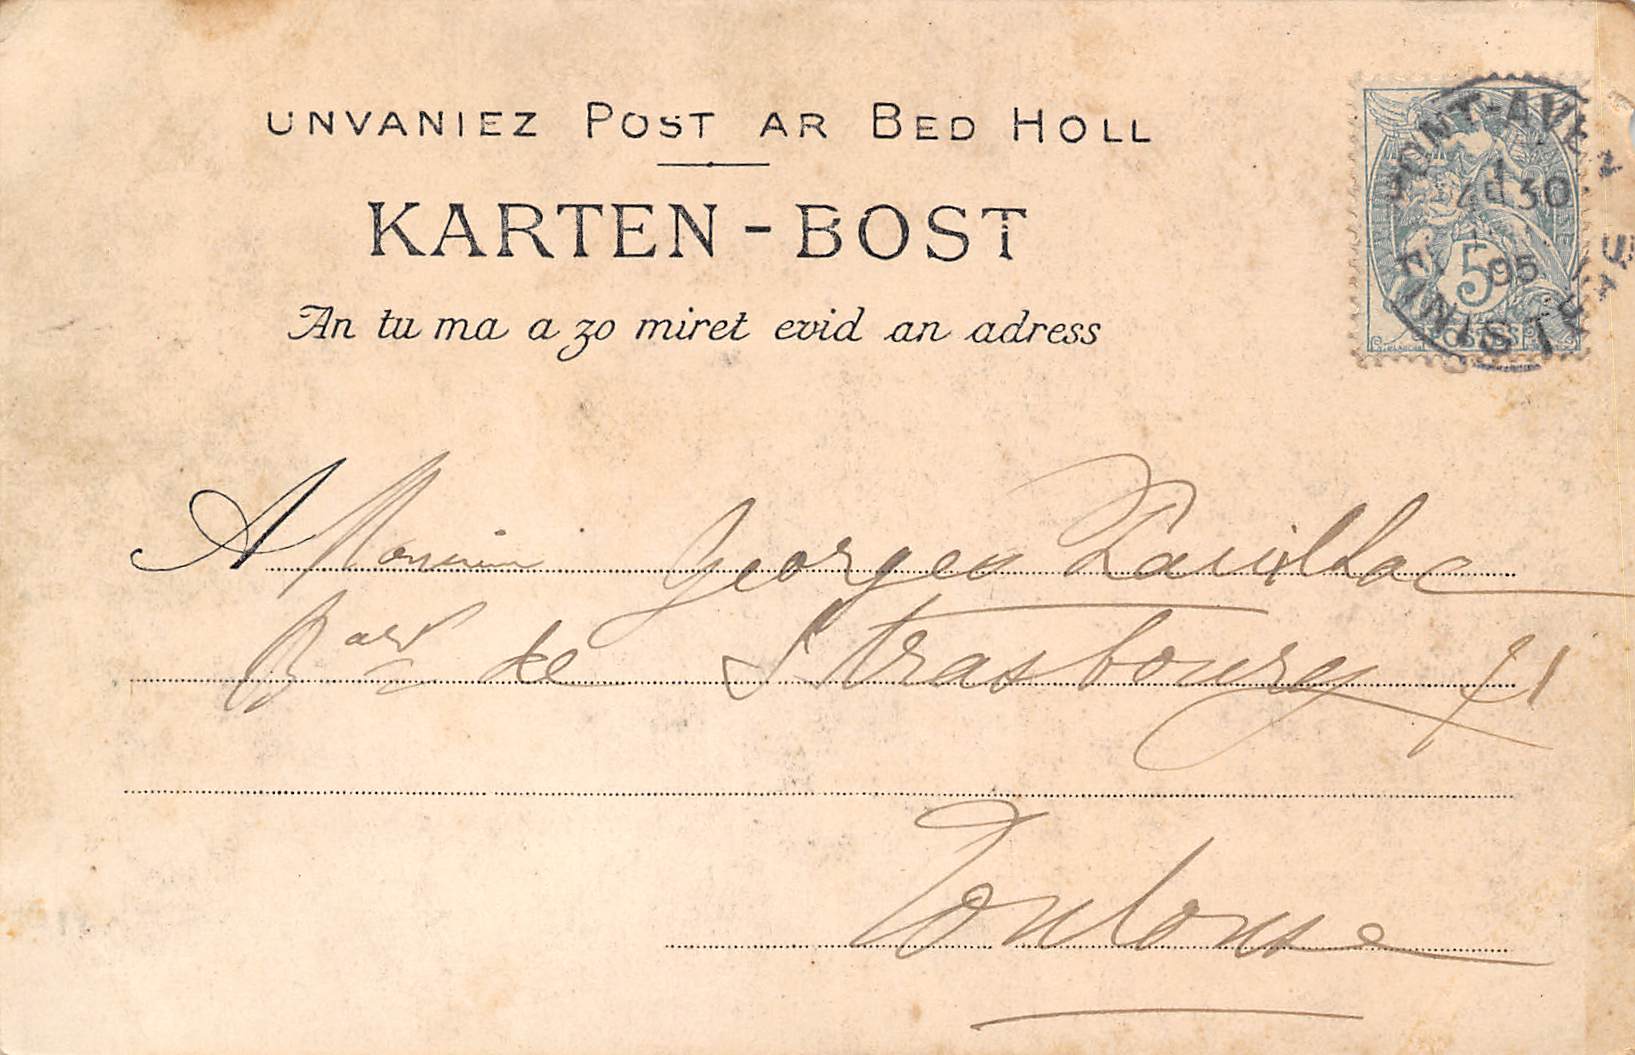 UNVANIEZ POST AR BED HOLL
KARTEN-BOST
An tu ma a zo miret evid an adress
PONT-AVEN
30
05
FINISTERE
5
POSTES
A Monsieur Georges
Bard de Strasbourg 71
Toulouse